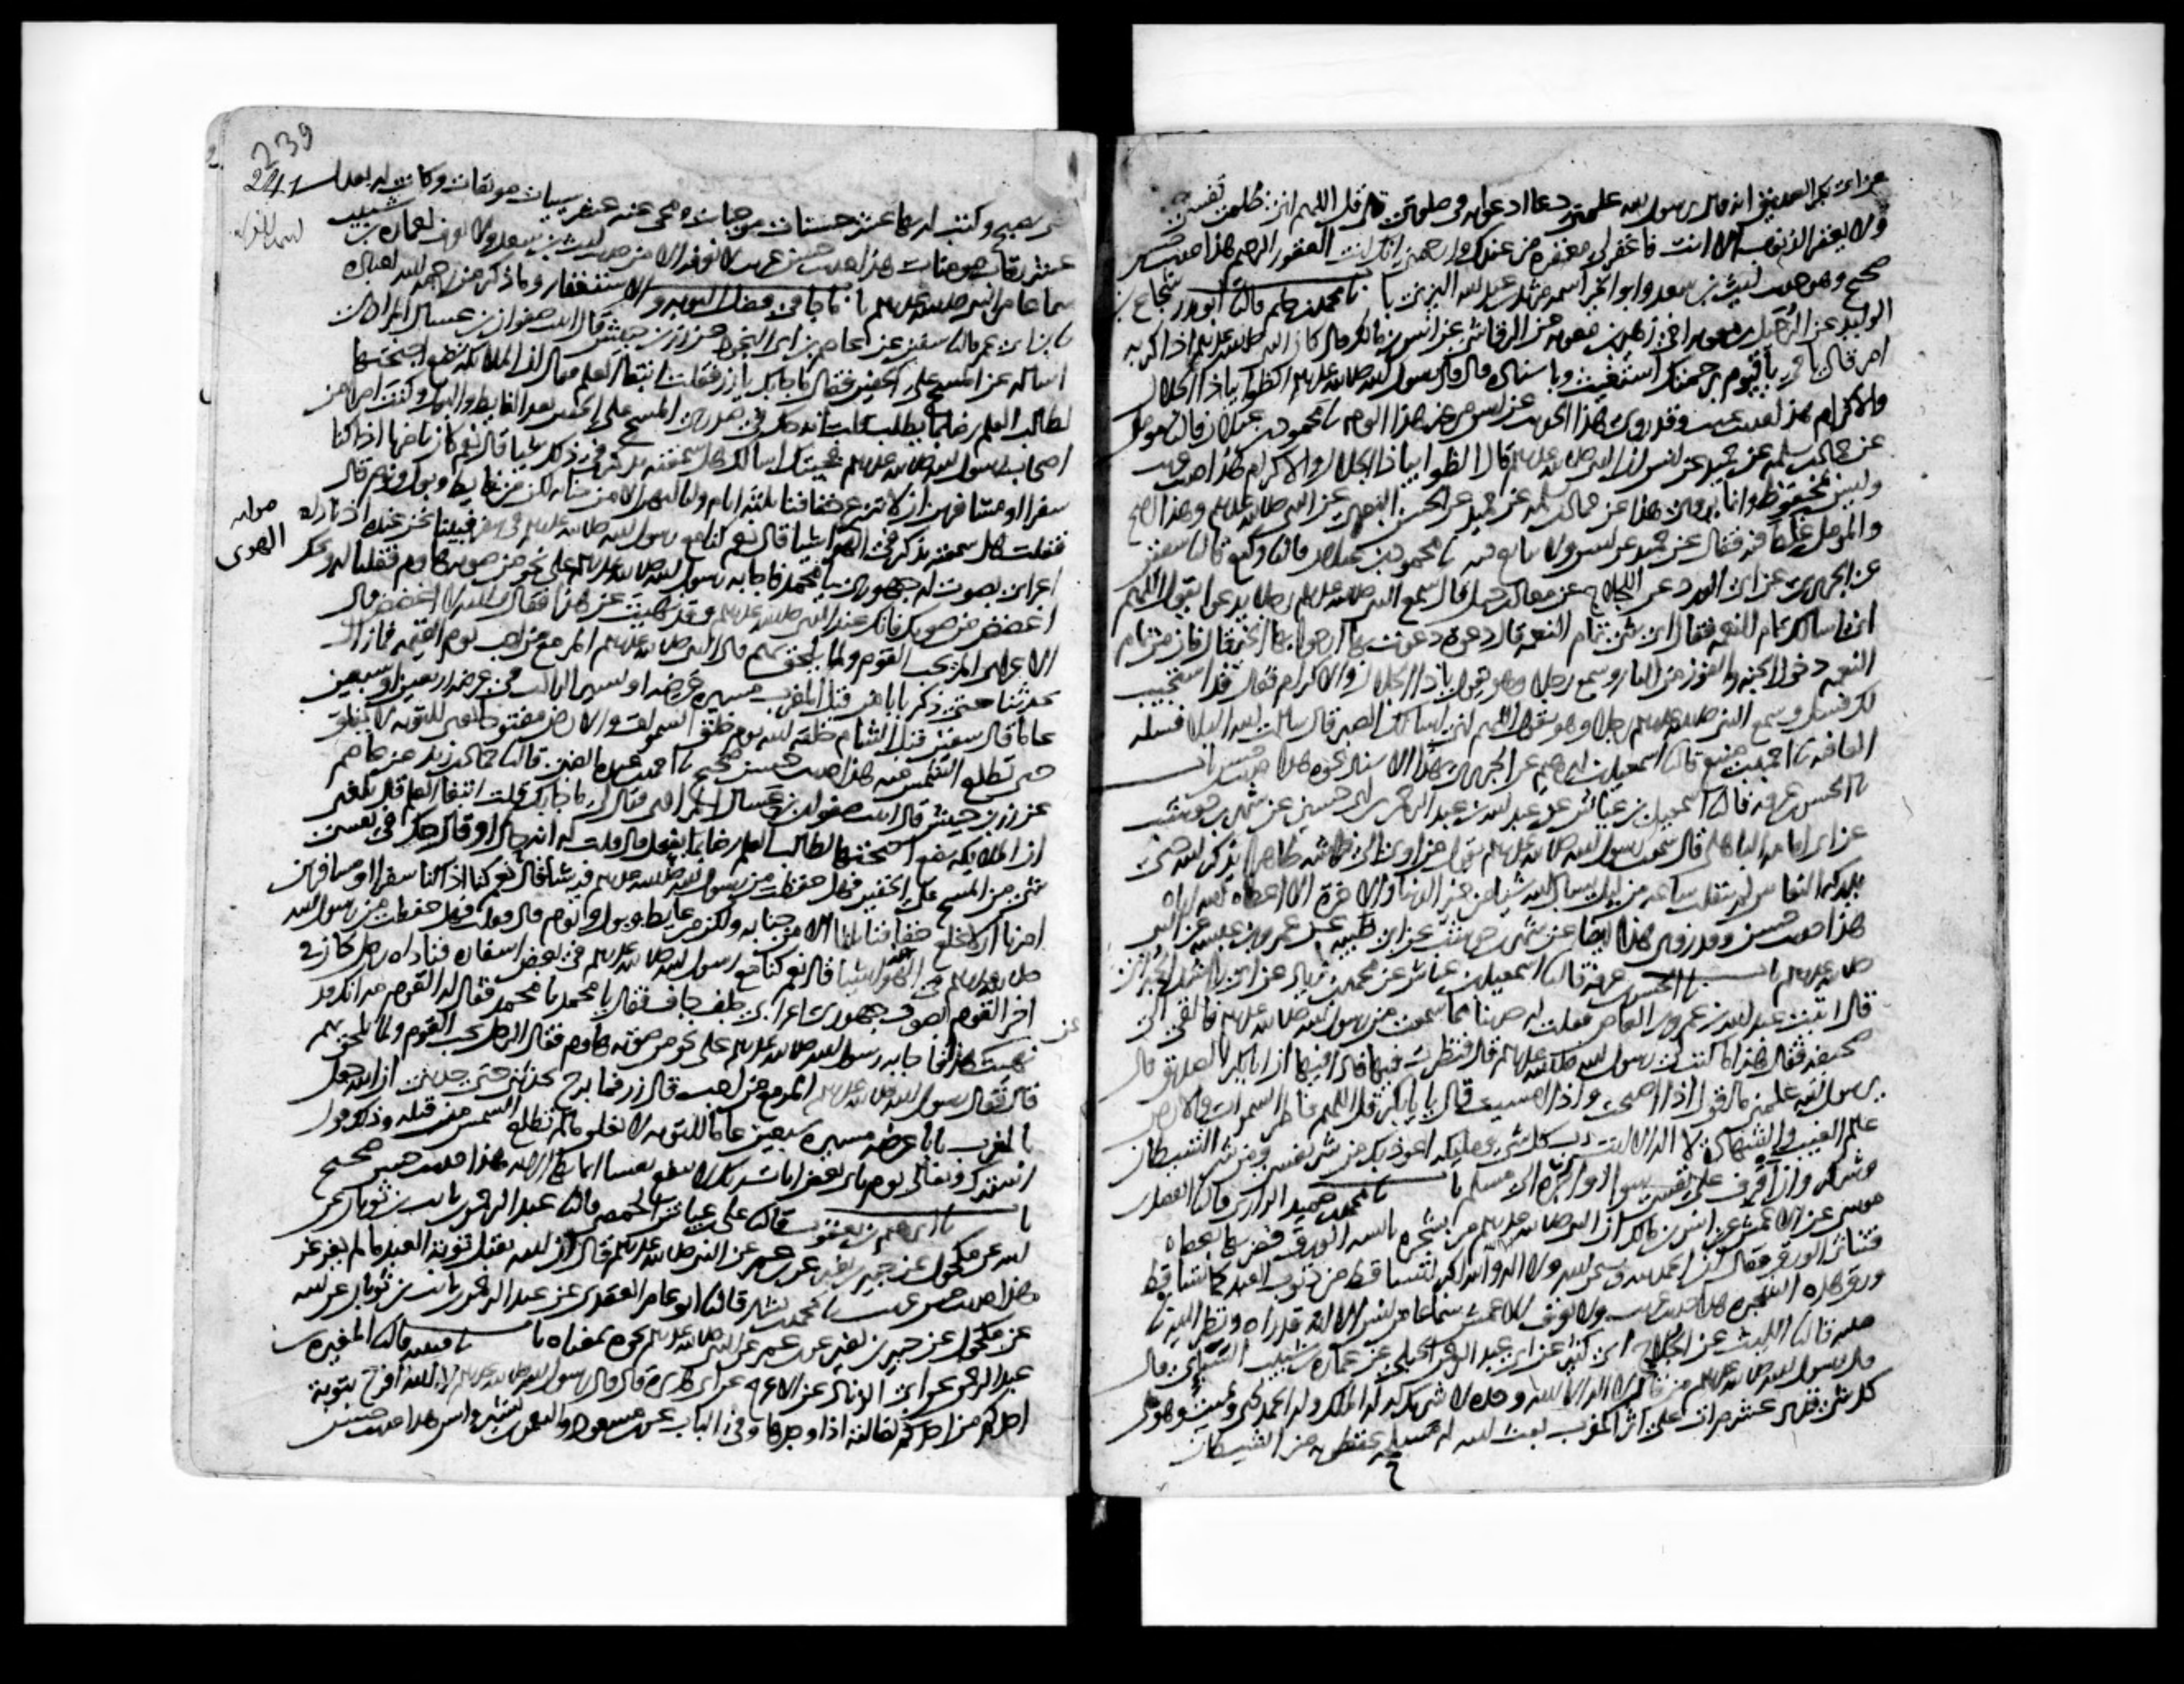 عن ابى بكر الصديق انه قال لرسول الله علمنى دعا ادعو به فى صلوتى قال قل اللهم انى ظلمت نفسى
ولا يغفر الذنوب الا انت فاغفر لى مغفرة من عندك وارحمنى انك انت الغفور الرحيم هذا حديث حسن
صحيح وهو حديث ليث بن سعد وابو الخير اسمه مرثد بن عبد الله اليزنى باب نا محمد بن حاتم قال نا ابو بدر شجاع بن
الوليد عن الرحيل بن معوية اخى زهير بن معوية عن الرقاشى عن انس بن مالك قال كان النبى صلى الله عليه وسلم اذا كربه
امر قال يا حى يا قيوم برحمتك استغيث وباسناده قال قال رسول الله صلى الله عليه وسلم الظوا بيا ذا الجلال
والاكرام هذا حديث غريب وقد روى هذا الحديث عن انس من غير هذا الوجه نا محمود بن غيلان قال نا مومل
عن حماد بن سلمه عن حميد عن انس ان النبى صلى الله عليه وسلم قال الظوا بيا ذا الجلال والاكرام هذا حديث غريب
وليس بمحفوظ وانما يروى هذا عن حماد بن سلمه عن حميد عن الحسن البصرى عن النبى صلى الله عليه وسلم وهذا اصح
والمومل غلط فيه فقال عن حميد عن انس ولا يتابع فيه نا محمود بن غيلان قال نا وكيع قال نا سفين
عن الجريرى عن ابى الورد عن اللجلاج عن معاذ بن جبل قال سمع النبى صلى الله عليه وسلم رجلا يدعو يقول اللهم
انى اسالك تمام النعمه فقال اى شى تمام النعمة قال دعوة دعوت بها ارجوا بها الخير قال فان من تمام
النعمه دخول الجنه والفوز من النار وسمع رجلا وهو يقول يا ذا الجلال والاكرام فقال قد استجيب
لك فسل وسمع النبى صلى الله عليه وسلم رجلا وهو يقول اللهم انى اسالك الصبر قال سالت الله البلا فسله
العافيه نا احمد بن منيع قال نا اسمعيل بن ابرهيم عن الجريرى بهذا الاسناد نحوه هذا حديث حسن باب
نا الحسن بن عرفه قال نا اسمعيل بن عياش عن عبد الله بن عبد الرحمن بن ابى حسين عن شهر بن حوشب
عن ابى امامه الباهلى قال سمعت رسول الله صلى الله عليه وسلم يقول من اوى الى فراشه طاهرا يذكر الله حتى
يدركه النعاس لم ينقلب ساعه من ليل يسال الله شيا من خير الدنيا والاخرة الا اعطاه الله اياه
هذا حديث حسن وقد روى هذا ايضا عن شهر بن حوشب عن ابى ظبيه عن عمرو بن عبسه عن النبى
صلى الله عليه وسلم باب نا الحسن بن عرفه قال نا اسمعيل بن عياش عن محمد بن زياد عن ابى راشد الحبرانى
قال اتيت عبد الله بن عمرو بن العاص فقلت له حدثنا مما سمعت من رسول الله صلى الله عليه وسلم فالقى الى
صحيفه فقال هذا ما كتب لى رسول الله صلى الله عليه وسلم قال فنظرت فيها فاذا فيها ان ابا بكر الصديق قال
يرسول الله علمنى ما اقول اذا اصبحت واذا امسيت قال يا ابا بكر قل اللهم فاطر السموات والارض
عالم الغيب والشهادة لا اله الا انت رب كل شى ومليكه اعوذ بك من شر نفسى ومن شر الشيطان
وشركه وان اقترف على نفسى سوا او اجره الى مسلم باب نا محمد بن حميد الرازى قال نا الفضل بن
موسى عن الاعمش عن انس بن مالك ان النبى صلى الله عليه وسلم مر بشجره يابسه الورق فضربها بعصاه
فتناثر الورق فقال ان الحمد لله وسبحن الله ولا اله الا الله والله اكبر لتساقط من ذنوب العبد كما تساقط
ورق هذه الشجره هذا حديث غريب ولا نعرف للاعمش سماعا من انس الا انه قد راه ونظر اليه نا
قتيبه قال نا الليث عن الجلاح ابى كثير عن ابى عبد الرحمن الحبلى عن عماره بن شبيب السبائى قال
قال رسول الله صلى الله عليه وسلم من قال لا اله الا الله وحده لا شريك له له الملك وله الحمد يحيى ويميت وهو على
كل شى قدير عشر مرات على اثر المغرب بعث الله له مسلحه يحفظونه من الشيطان
239
241
حتى يصبح وكتب له بها عشر حسنات موجبات ومحى عنه عشر سيات موبقات وكانت له بعدل
عشر رقاب مومنات هذا حديث حسن غريب لا نعرفه الا من حديث ليث بن سعد ولا نعرف لعمارة بن شبيب
سماعا من النبى صلى الله عليه وسلم باب ما جا فى فضل التوبه والاستغفار وما ذكر من رحمه الله لعباده
نا ابن ابى عمر قال نا سفين عن عاصم بن ابى النجود عن زر بن حبيش قال اتيت صفوان بن عسال المرادى
اساله عن المسح على الخفين فقال ما جا بك يا زر فقلت ابتغا العلم فقال ان الملائكة تضع اجنحتها
لطالب العلم رضا بما يطلب قلت انه حك فى صدرى المسح على الخفين بعد الغايط والبول وكنت امرا من
اصحاب رسول الله صلى الله عليه وسلم فجيتك اسالك هل سمعته يذكر فى ذلك شيا قال نعم كان يامرنا اذا كنا
سفرا او مسافرين ان لا ننزع خفافنا ثلثه ايام ولياليهن الا من جنابه لكن من غايط وبول ونوم قال
فقلت هل سمعته يذكر فى الهوى شيا قال نعم كنا مع رسول الله صلى الله عليه وسلم فى سفر فبينا نحن عنده اذ ناداه
صوابه
الهوى
اعرابى بصوت له جهورى يا محمد فاجابه رسول الله صلى الله عليه وسلم على نحو من صوته هاوم فقلنا له ويحك
اغضض من صوتك فانك عند النبى صلى الله عليه وسلم وقد نهيت عن هذا فقال والله لا اغضض قال
الاعرابى المر يحب القوم ولما يلحق بهم قال النبى صلى الله عليه وسلم المر مع من احب يوم القيمه فما زال
يحدثنا حتى ذكر بابا من قبل المغرب مسيرة عرضه او يسير الراكب فى عرضه اربعين او سبعين
عاما قال سفين قبل الشام خلقه الله يوم خلق السموات والارض مفتوحا يعنى للتوبه لا يغلق
حتى تطلع الشمس منه هذا حديث حسن صحيح نا احمد بن عبدة الضبى قال نا حماد بن زيد عن عاصم
عن زر بن حبيش قال اتيت صفوان بن عسال المرادى فقال لى ما جا بك قلت ابتغا العلم قال بلغنى
ان الملايكه تضع اجنحتها لطالب العلم رضا بما يفعل قال قلت له انه حاك او قال حك فى نفسى
شى من المسح على الخفين فهل حفظت من رسول الله صلى الله عليه وسلم فيه شيا قال نعم كنا اذا كنا سفرا او مسافرين
امرنا ان لا نخلع خفافنا ثلثا الا من جنابه ولكن من غايط وبول ونوم قال فقلت فهل حفظت من رسول الله
صلى الله عليه وسلم فى الهوى شيا قال نعم كنا مع رسول الله صلى الله عليه وسلم فى بعض اسفاره فناداه رجل كان فى
اخر القوم بصوت جهورى اعرابى جلف جاف فقال يا محمد يا محمد فقال له القوم مه انك قد
نهيت عن هذا فاجابه رسول الله صلى الله عليه وسلم على نحو من صوته هاوم فقال الرجل يحب القوم ولما يلحق بهم
قال فقال رسول الله صلى الله عليه وسلم المر مع من احب قال زر فما برح يحدثنى حتى حدثنى ان الله جعل
بالمغرب بابا عرضه مسيرة سبعين عاما للتوبه لا يغلق ما لم تطلع الشمس من قبله وذلك قول
الله تبارك وتعالى يوم ياتى بعض ايات ربك لا ينفع نفسا ايمانها الايه هذا حديث حسن صحيح
باب نا ابرهيم بن يعقوب قال نا على بن عياش الحمصى قال نا عبد الرحمن بن ثابت بن ثوبان عن
ابيه عن مكحول عن جبير بن نفير عن ابن عمر عن النبى صلى الله عليه وسلم قال ان الله يقبل توبة العبد ما لم يغرغر
هذا حديث حسن غريب نا محمد بن بشار قال نا ابو عامر العقدى عن عبد الرحمن بن ثابت بن ثوبان عن ابيه
عن مكحول عن جبير بن نفير عن ابن عمر عن النبى صلى الله عليه وسلم نحوه بمعناه باب نا قتيبه قال نا المغيرة بن
عبد الرحمن عن ابى الزناد عن الاعرج عن ابى هريرة قال قال رسول الله صلى الله عليه وسلم لله افرح بتوبة
احدكم من احدكم بضالته اذا وجدها وفى الباب عن ابن مسعود والنعمان بن بشير وانس هذا حديث حسن